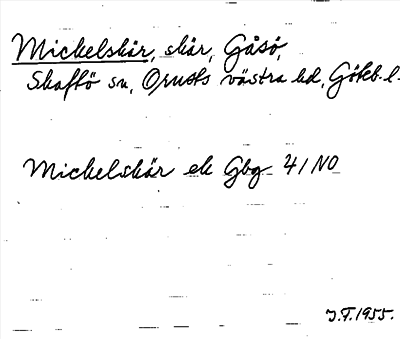 Mickelskär, skär, Gåsö,
Skaftö sn, Orusts västra hd, Gökb. l.
Mickelskär ek Gbg 41 NO
J.F. 1955.